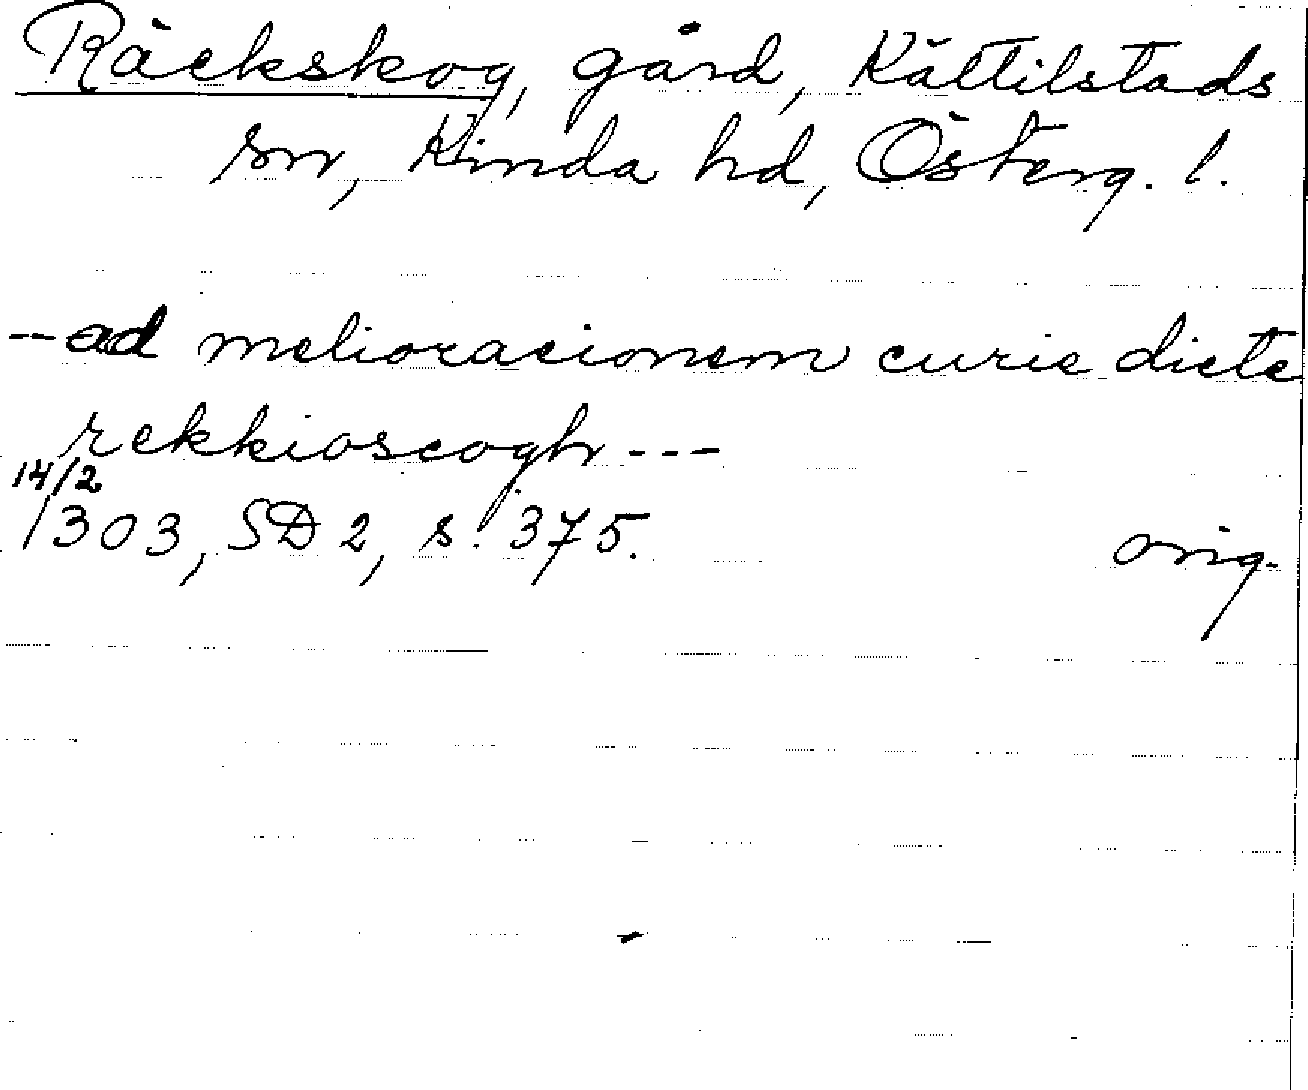 Räckskog, gård, Kättilstads
sn, Kinda hd, Österg. l.
-- ad melioracionem curie dicte
rekkioscogh ---
14/2
1303, SD 2, s. 375. orig.